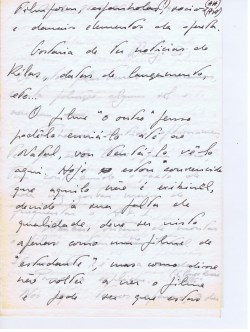 Filmforum, espanholas, social
e demais elementos de aposta.
Gostaria de ter notícias de
Kilas, datas de lançamento,
etc..
O filme "O outro" penso
podê-lo enviá-lo até ao
Natal, vou tentá-lo vê-lo
aqui. Hoje estou convencido
que aquilo não é exibível,
devido à sua falta de
qualidade, deve ser visto
apenas como um filme de
"estudante", mas como disse
não voltei a ver o filme
e pode ser que estou